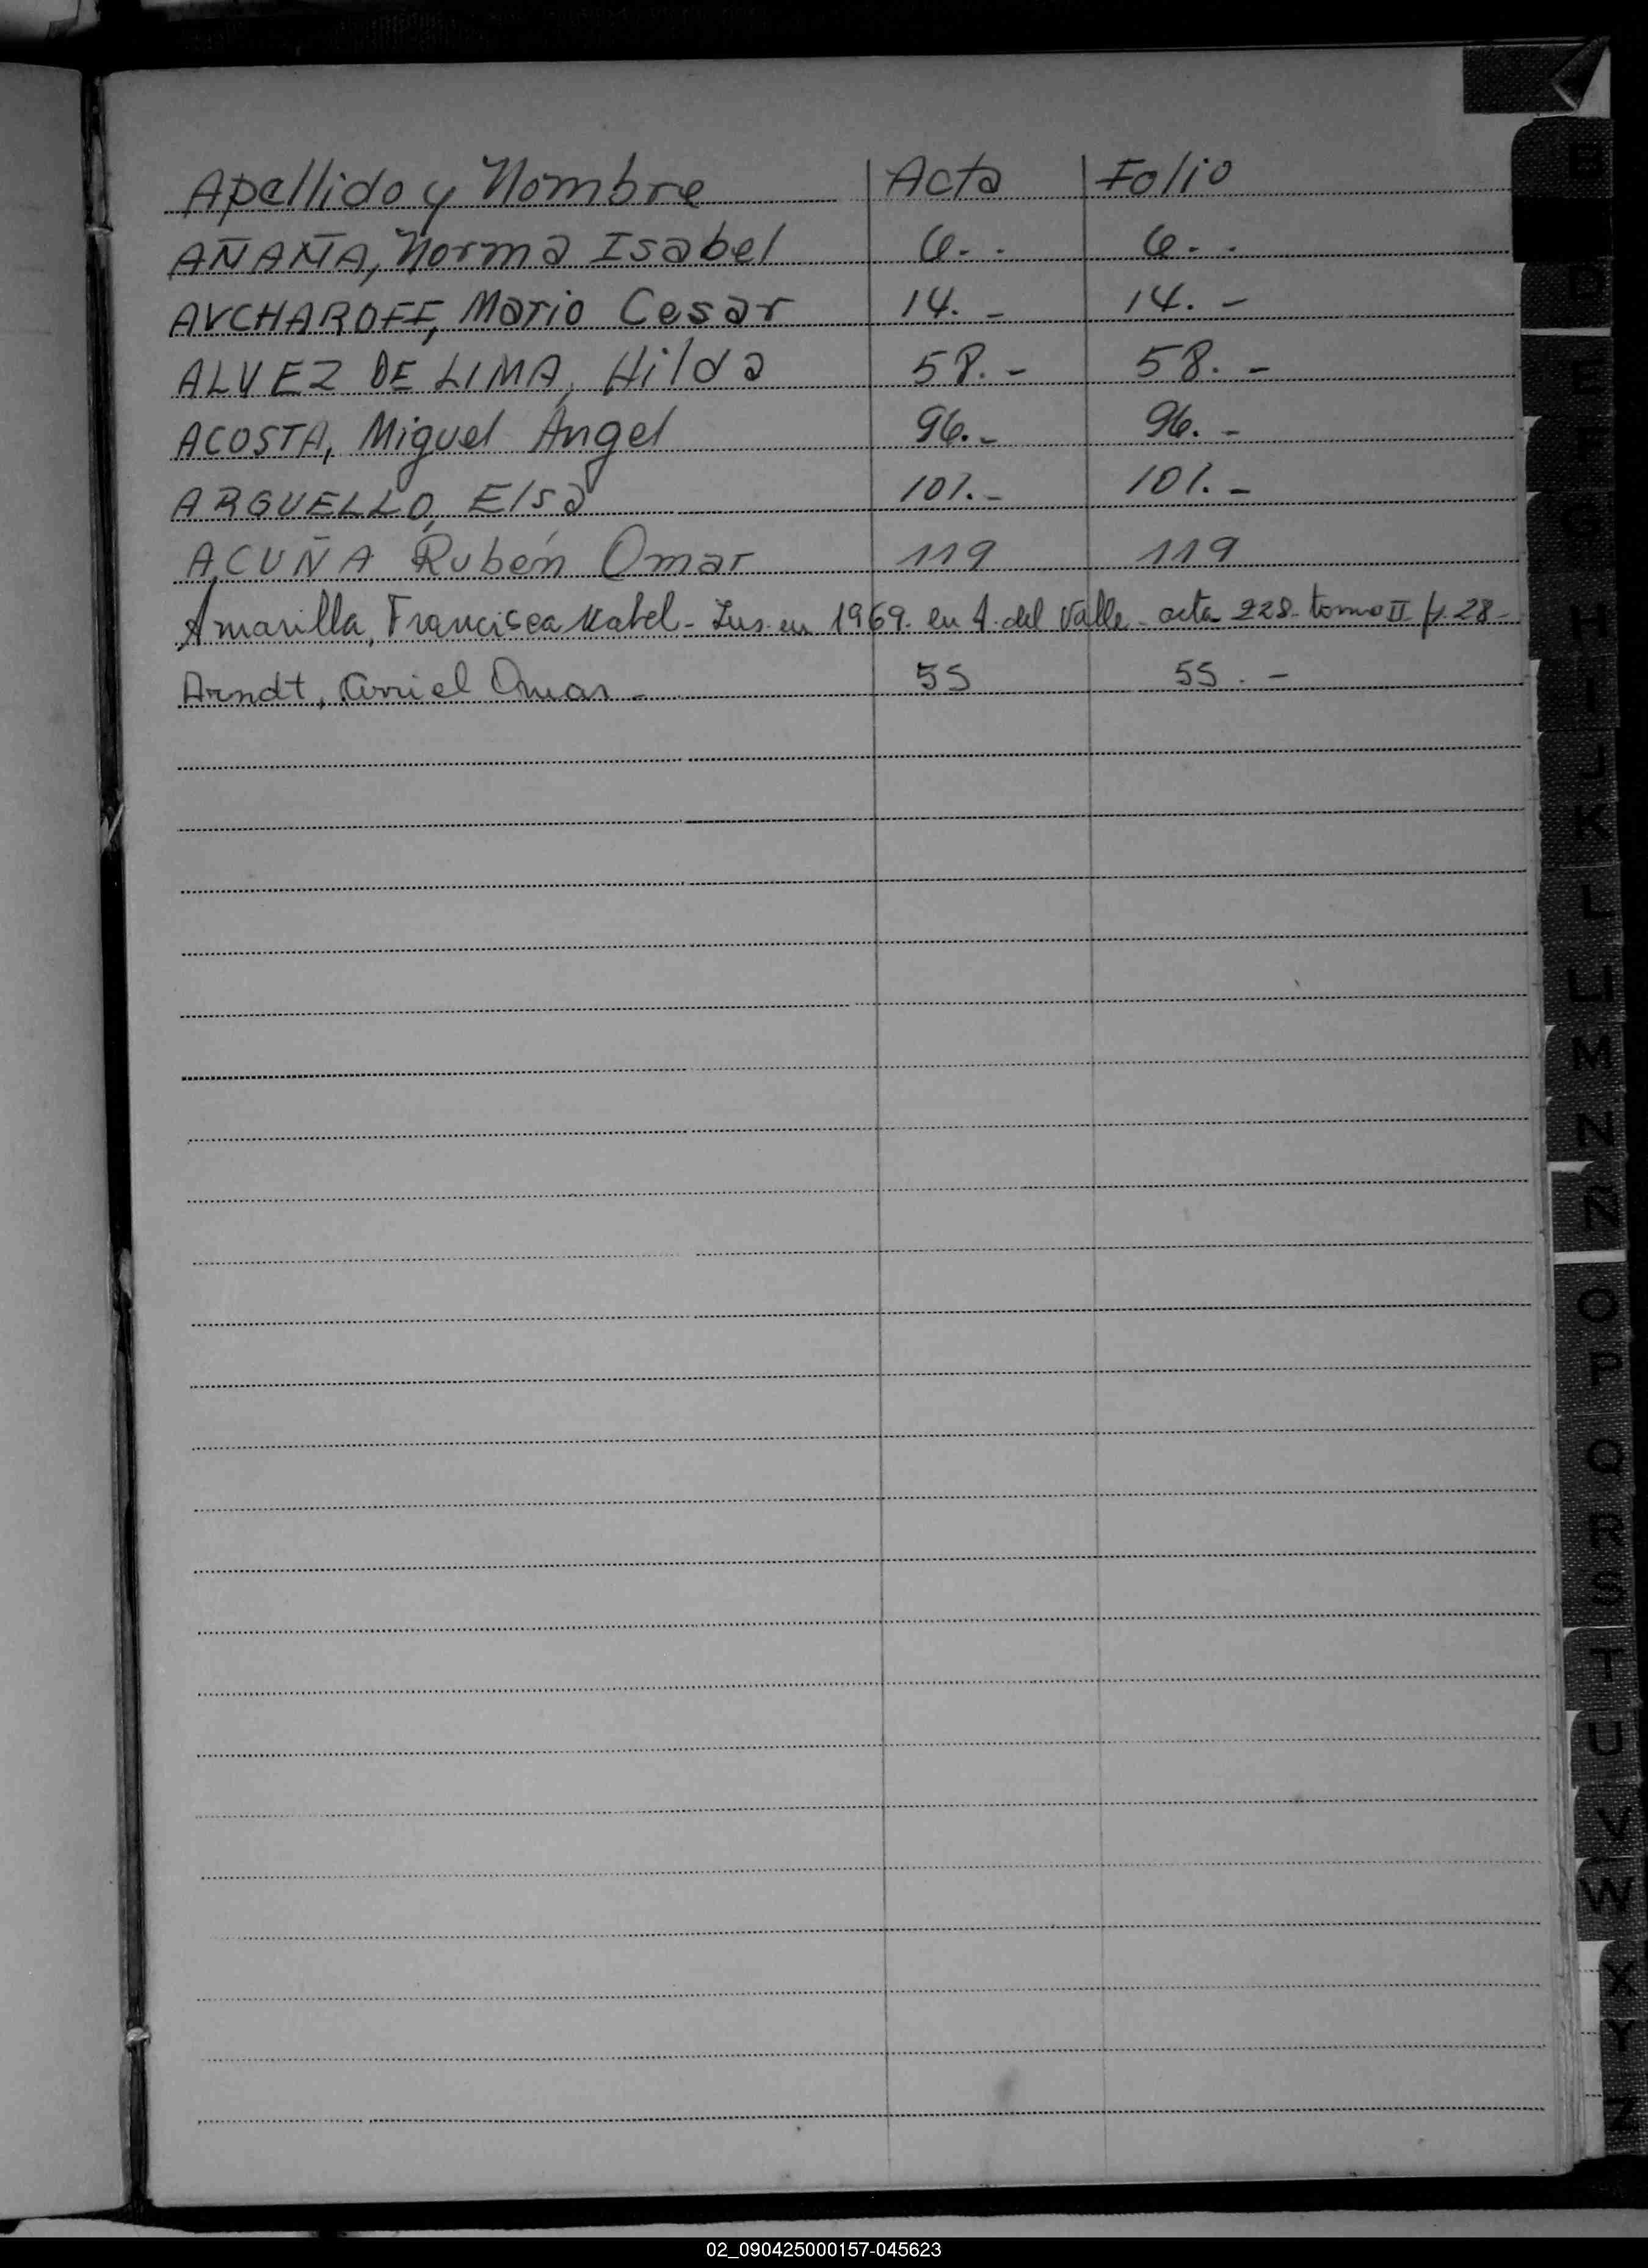 Apellido y Nombre Acta Folio
AÑAÑA, Norma Isabel 6.- 6.-
AVCHAROFF, Mario Cesar 14.- 14.-
ALVEZ DE LIMA, Hilda 58.- 58.-
ACOSTA, Miguel Ángel 96.- 96.-
ARGUELLO, Elsa 101.- 101.-
ACUÑA Rubén Omar 119 119
Amarilla, Francisca Mabel - Ins. en 1969. en A. del Valle - acta 228 - tomo II f. 28 -
Arndt, Arriel Omar - 55 55.-
B
D
E
F
G
H
I
J
K
L
LL
M
N
Ñ
O
P
Q
R
S
T
U
V
W
X
Y
Z
02_090425000157-045623